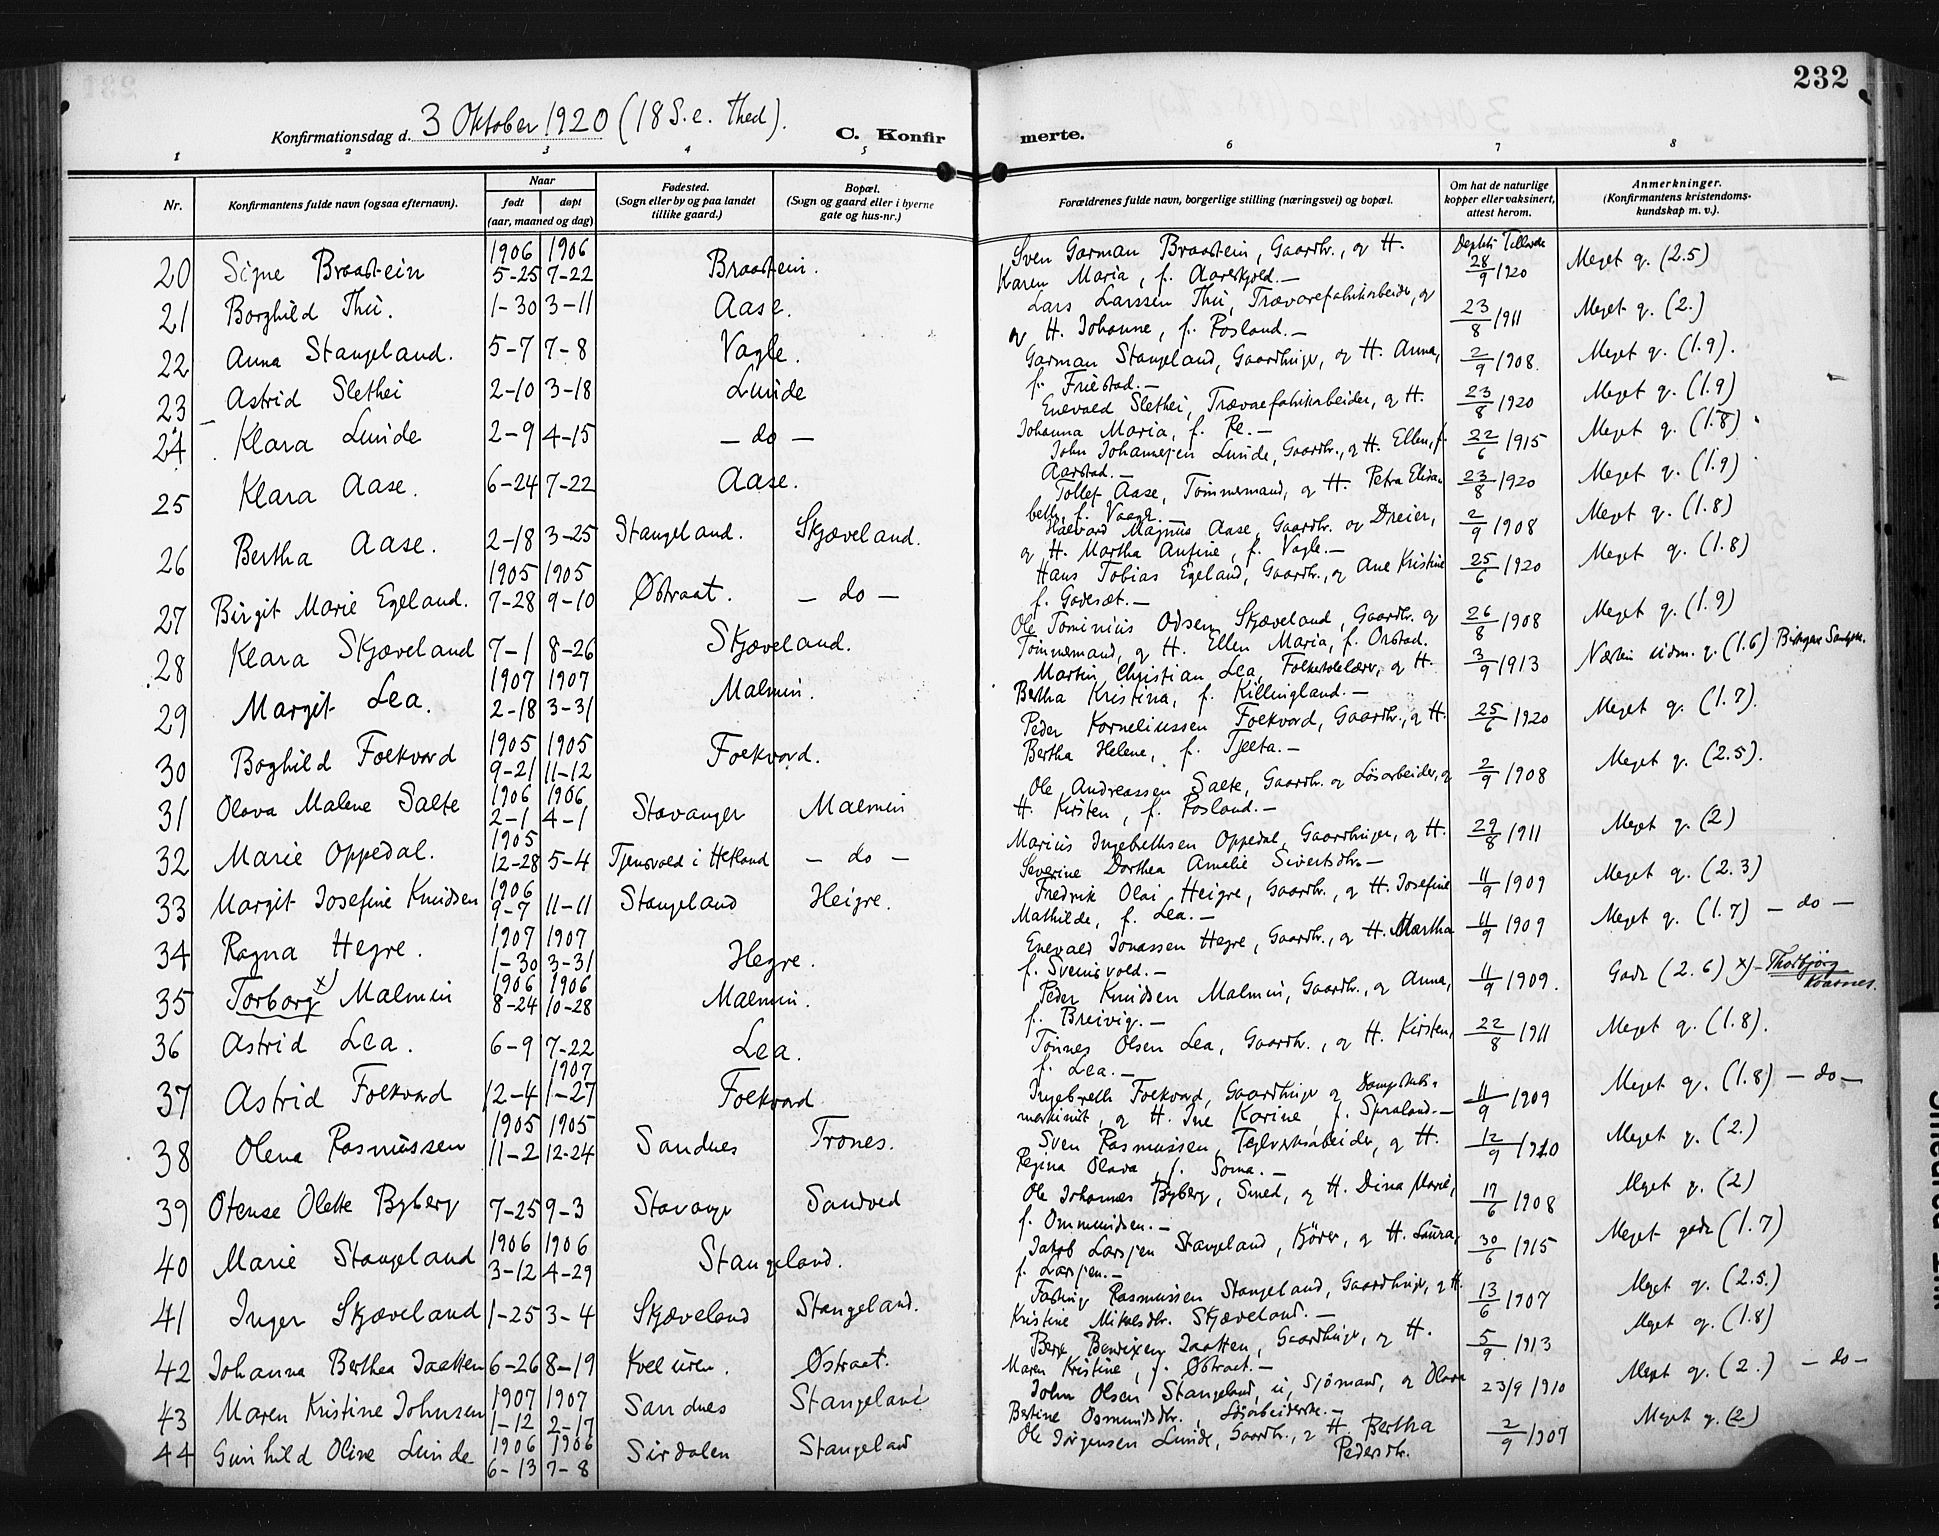 232
Konfirmationsdag d. 3 Oktober 1920 (18 S. e. Tred).
C. Konfirmerte.
1 2 3 4 5 6 7 8
Nr. Konfirmantens fulde navn (ogsaa efternavn). Naar født døpt (aar, maaned og dag) Fødested. (Sogn eller by og paa landet tillike gaard.) Bopæl. (Sogn og gaard eller i byerne gate og hus-nr.) Forældrenes fulde navn, borgerlige stilling (næringsvei) og bopæl. Om hat de naturlige kopper eller vaksinert, attest herom. Anmerkninger. (Konfirmantens kristendomskundskap m. v.).
20 Signe Braastein 1906 5-25 1906 7-22 Braastein. Sven Gorman Braastein, Gaardbr., og H.
Karen Maria, f. Aareskjold.- 28/9 1920 Meget g. (2.5)
21 Borghild Thu. 1-30 3-11 Aase. Lars Larssen Thu, Trævarefabrikarbeider, og
og H. Johanne, f. Fosland.- 23/8 1911 Meget g. (2.)
22 Anna Stangeland. 5-7 7-8 Vagle. Gorman Stangeland, Gaardbruger, og H. Anna,
f. Friestad.- 2/9 1908. Meget g. (1.9).
23 Astrid Slethei 2-10 3-18 Lunde Enevald Slethei, Trævarefabrikarbeider, og H.
Johanna Maria, f. Re.- 23/8 1920 Meget g. (1.9)
24 Klara Lunde 2-9 4-15 - do - John Johannessen Lunde, Gaardbr., og H. Ellen, f.
Aarstad.- 22/6 1915 Meget g. (1.8)
25 Klara Aase. 6-24 7-22 Aase. Tollef Aase, Tømmermand, og H. Petra Elisa-
beth, f. Vaagle.- 23/8 1920 Meget g. (1.9)
26 Bertha Aase. 2-18 3-25 Stangeland. Skjæveland. Haavard Magnus Aase, Gaardbr. og Dreier,
og H. Martha Anfine, f. Vagle.- 2/9 1908 Meget g. (1.8)
27 Birgit Marie Egeland. 1905 7-28 1905 9-10 Østraat. - do - Hans Tobias Egeland, Gaardbr., og Ane Kristine
f. Godeset.- 25/6 1920 Meget g. (1.8)
28 Klara Skjæveland 7-1 8-26 Skjæveland. Ole Tominius Odsen Skjæveland, Gaardbr. og
Tømmermand, og H. Ellen Maria, f. Orstad. 26/8 1908 Meget g. (1.9)
29 Margit Lea. 1907 2-18 1907 3-31 Malmin. Martin Christian Lea, Folkeskolelærer, og H.
Bertha Kristina, f. Killingland.- 3/9 1913 Næsten udm. g. (1.6)
30 Boghild Folkvord 1905 9-21 1905 11-12 Folkvord. Peder Korneliussen Folkvord, Gaardbr., og H.
Bertha Helene, f. Tjelta.- 25/6 1920 Meget g. (1.7).
31 Olava Malene Salte 1906 2-1 1906 4-1 Stavanger Malmin Ole Andreassen Salte, Gaardbr. og Løsarbeider, og
H. Kirsten, f. Fosland.- 2/9 1908 Meget g. (2.5).
32 Marie Oppedal. 1905 12-28 5-4 Tjensvold i Hetland - do - Marius Ingebrethsen Oppedal, Gaardbruger, og H.
Severine Dorthea Amalie Sivertsdtr.- 29/8 1911 Meget g. (2)
33 Margit Josefine Knudsen 1906 9-7 11-11 Stangeland Heigre. Fredrik Olai Heigre, Gaardbr., og H. Josefine
Mathilde, f. Lea.- 11/9 1909 Meget g. (2.3)
34 Ragna Hegre. 1907 1-30 1907 3-31 Hegre. Enevald Jonassen Hegre, Gaardbr., og H. Martha
f. Svensvold.- 11/9 1909 Meget g. (1.7) - do -
35 Torborg x) Malmin 1906 8-24 1906 10-28 Malmin. Peder Knudsen Malmin, Gaardbr., og Anna,
f. Breivig.- 11/9 1909. Godt (2.6) x) - Thorbjørg
36 Astrid Lea. 6-9 7-22 Lea. Tønnes Olsen Lea, Gaardbr., og H. Kirsten,
f. Lea.- 22/8 1911 Meget g. (1.8).
37 Astrid Folkvord 12-4 1907 1-27 Folkvord Ingebreth Folkvord, Gaardbruger og Dampskibs-
maskinist, og H. Ine Karine, f. Sporaland.- 11/9 1909 Meget g. (1.8) - do -
38 Olena Rasmussen 1905 11-2 1905 12-24 Sandnes Trones. Sven Rasmussen, Teglverksarbeider, og H.
Regina Olava, f. Soma.- 12/9 1920 Meget g. (2.)
39 Otense Olette Byberg 7-25 9-3 Stavanger Sandved Ole Johannes Byberg, Smed, og H. Dina Marie,
f. Ommundsen.- 17/6 1908 Meget g. (2)
40 Marie Stangeland 1906 3-12 1906 4-29 Stangeland. Jakob Larssen Stangeland, Kjører, og H. Laura,
f. Larssen.- 30/6 1915 Meget godt (1.7)
41 Inger Skjæveland 1-25 3-4 Skjæveland Stangeland. Rasmussen Stangeland, Gaardbruger, og H.
Kristine Mikalsdtr. Skjæveland.- 13/6 1907 Meget g. (2.5.)
42 Johanna Berthea Jaatten 6-26 8-19 Østraat. Jaatten, Gaardbruger, og H.
Maren Kristine, f. Østraat.- 5/9 1913 Meget g. (1.8)
43 Maren Kristine Johnsen 1907 1-12 1907 2-17 Sandnes Stangeland John Olsen Stangeland, u, Sjømand, og Olava
Bertine Osmundsdtr., Løsarbeiderske.- 23/9 1910 Meget g. (2.) - do -
44 Gunhild Oline Lunde 1906 6-13 1906 7-8 Sirdalen Stangeland Ole Jørgensen Lunde, Gaardbr., og H. Bertha
Pedersdtr. 2/9 1907 Meget g. (2)